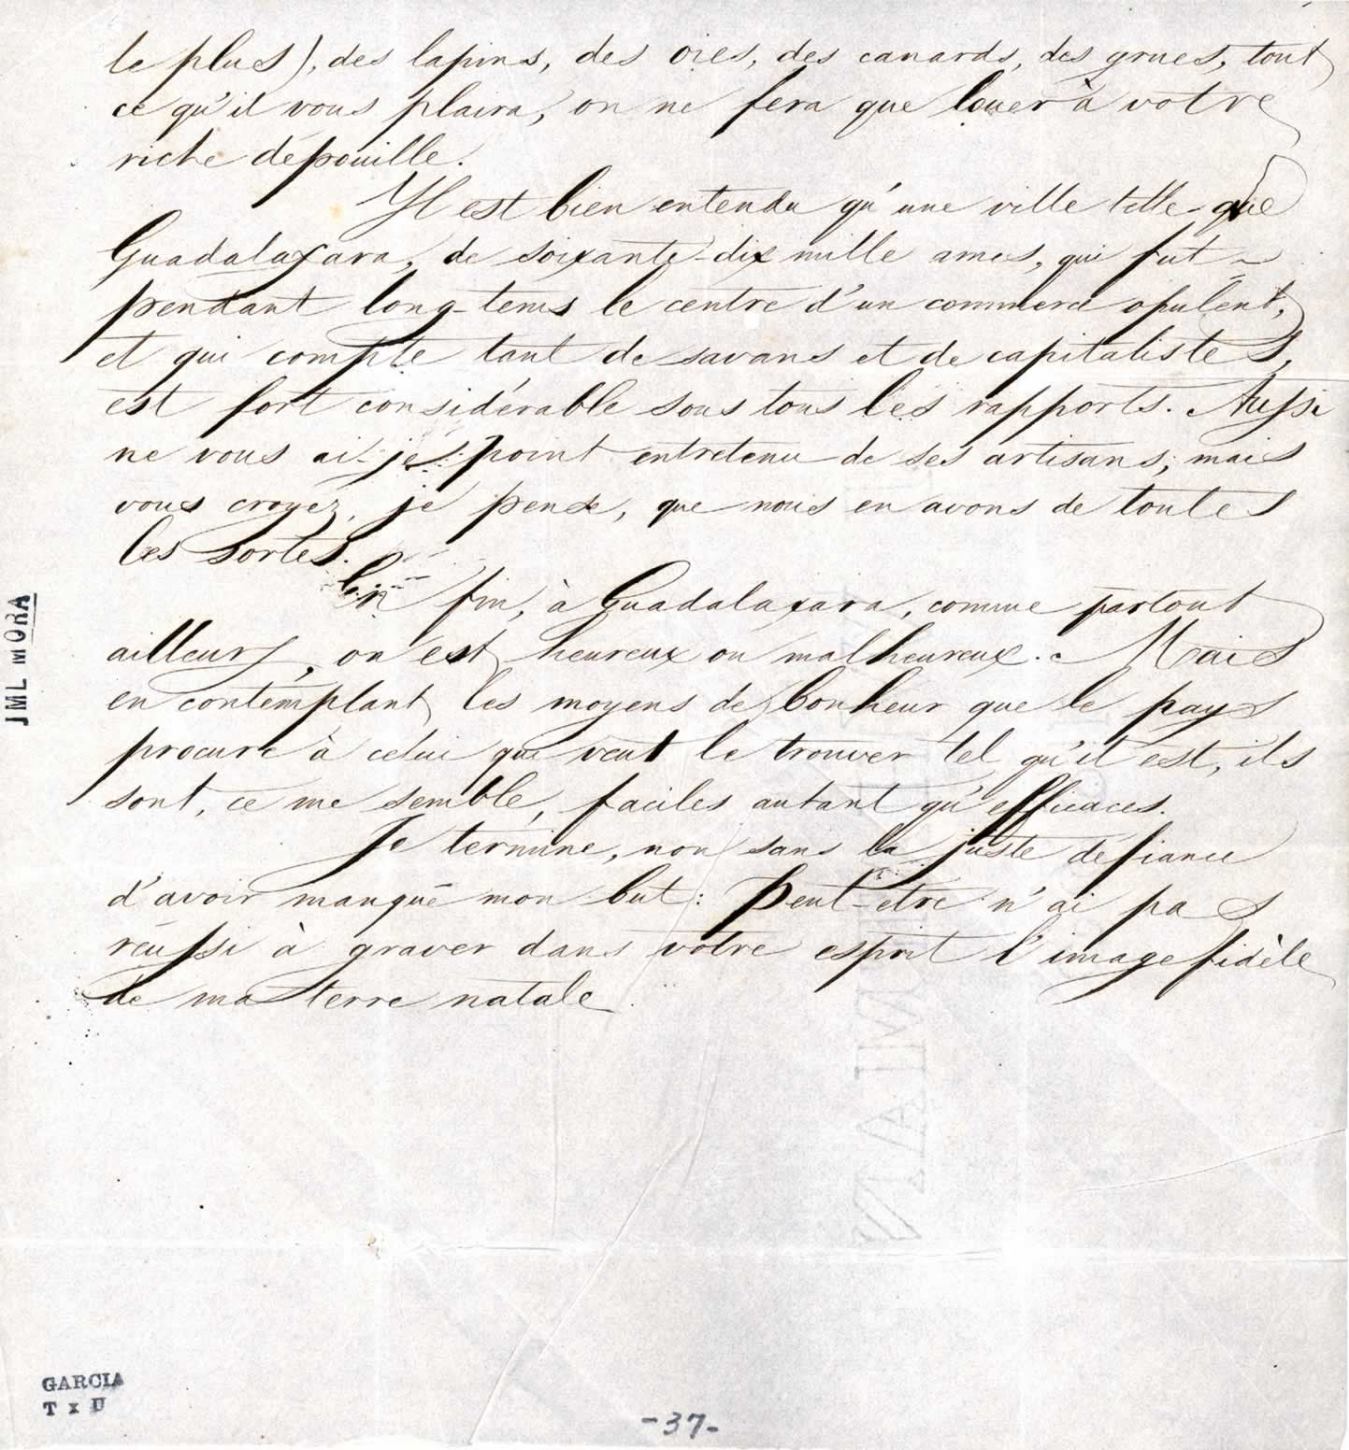 le plus), des lapins, des oies, des canards, des grues, tout
ce qu'il vous plaira, on ne fera que louer à votre
riche dépouille.
Il est bien entendu qu'une ville telle que
Guadalaxara, de soixante-dix mille ames, qui fut
pendant long-tems le centre d'un commerce opulent,
et qui compte tant de savans et de capitalistes,
est fort considérable sous tous les rapports. Aussi
ne vous ai-je point entretenu de ses artisans; mais
vous croyez, je pense, que nous en avons de toutes
les sortes.
En fin, à Guadalaxara, comme partout
ailleurs, on est heureux ou malheureux. Mais
en contemplant les moyens de bonheur que le pays
procure à celui qui veut le trouver tel qu'il est, ils
sont, ce me semble, faciles autant qu'efficaces.
Je termine, non sans la juste defiance
d'avoir manqué mon but: Peut-etre n'ai pas
réussi à graver dans votre esprit l'image fidèle
de ma terre natale.
JML MORA
GARCIA
T x U
-37-